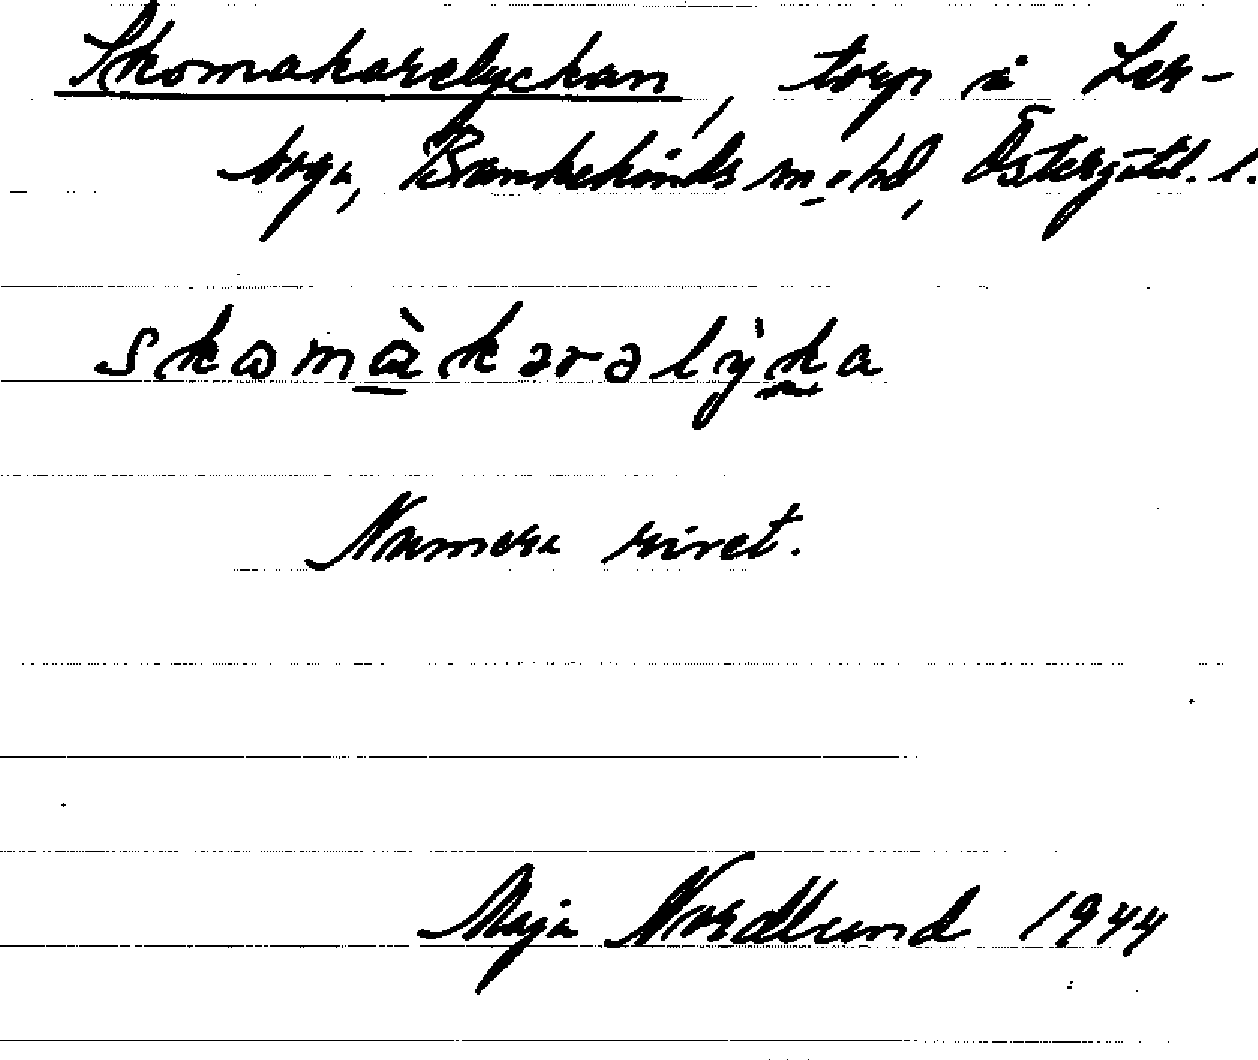 Skomakarelyckan, torp i Ler-
boga, Bankekinds sn o hd, Östergötl. l.
skomàkərəlỳka
Numera rivet.
Maja Nordlund 1944